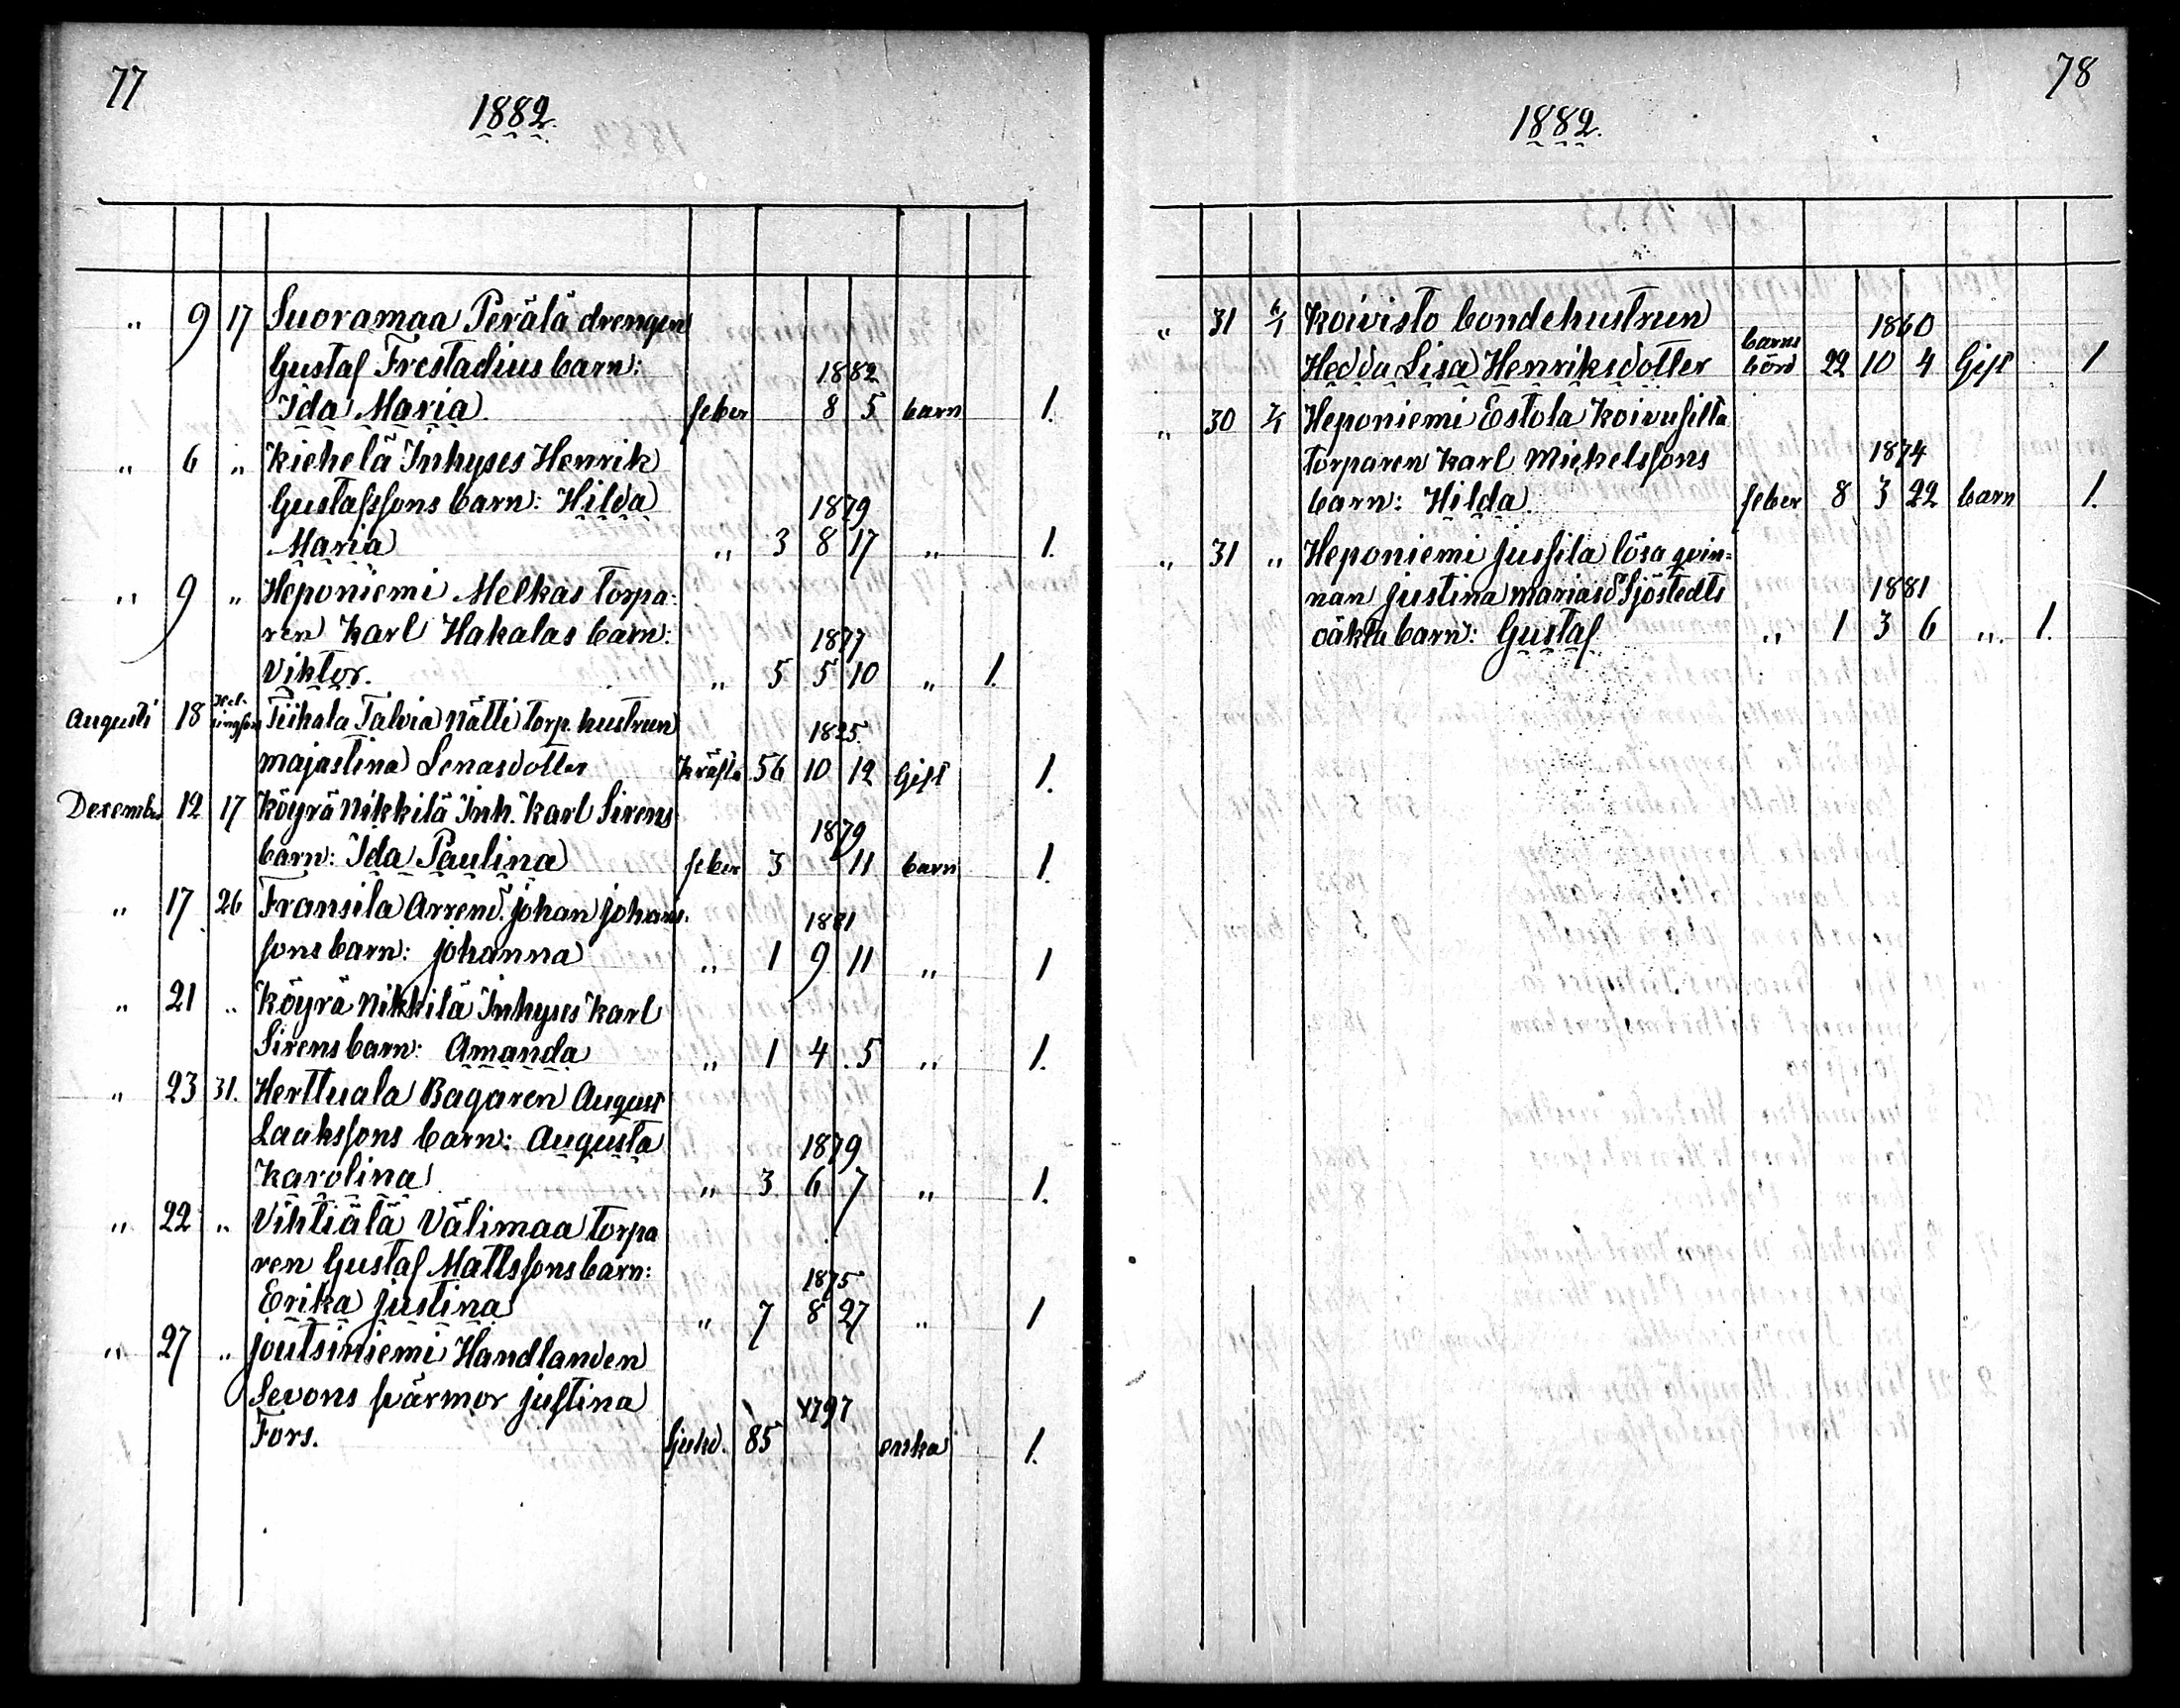 77
1882.
„ 9 17 Suoramaa Perälä drengen
Gustaf Frestadius barn: 1882
Ida Maria feber 8 5 barn 1.
„ 6 „ Kiehelä Inhyses Henrik
Gustafssons barn: Hilda 1879
Maria „ 3 8 17 „ 1.
„ 9 „ Heponiemi Melkas torpa-
ren Karl Hakalas barn: 1877
Viktor. „ 5 5 10 „ 1.
Augusti 18 Hel-
singfors Tiihala Talvia Nätti torp. hustrun 1825.
Majastina Lenasdotter Kräfta 56 10 12 Gift 1.
December 12 17 Köyrä Nikkilä Inh. Karl Sirens 1879
barn: Ida Paulina feber 3 11 barn 1.
„ 17 26 Fransila Arrend. Johan Johans- 1881
sons barn: Johanna „ 1 9 11 „ 1
„ 21 „ Köyrä Nikkilä Inhyses Karl
Sirens barn: Amanda „ 1 4 5 „ 1.
„ 23 31. Herttuala Bagaren August
Laakssons barn: Augusta 1879
Karolina „ 3 6 7 „ 1.
„ 22 „ Vihtiälä Välimaa torpa
ren Gustaf Mattssons barn: 1875
Erika Justina „ 7 8 27 „ 1
„ 27 „ Joutsiniemi Handlanden
Sevons svärmor Justina 1797
Fors. Sjukd. 85 enka 1.
78
1882.
„ 31 6/1 Koivisto bondehustrun barns 1860
Hedda Lisa Henriksdotter börd 22 10 4 Gift 1
„ 30 7/1 Heponiemi Estola Koivusilta
torparen Karl Mickelssons 1874
barn: Hilda. feber 8 3 22 barn 1.
„ 31 „ Heponiemi Jussila lösa qvin-
nan Justina Mariasd Sjöstedts 1881
oäkta barn: Gustaf „ 1 3 6 „ 1.